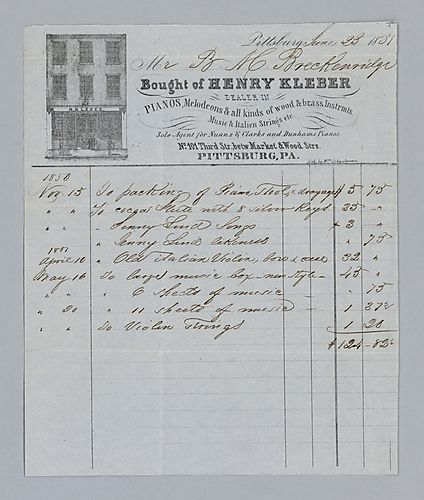 Pittsburg June 23 1851
Mr B. M. Breckenridge
H. KLEBER
Bought of HENRY KLEBER
DEALER IN
PIANOS, Melodeons & all kinds of wood & brass Instrmts
Music & Italien Strings etc.
Sole Agent for Nunns & Clarks and Dunhams Pianos
No. 101 Third Str. betw. Market & Wood Strs.
PITTSBURG, PA.
1850
Nov 15 To packing of Piano, Stool & drayage $ 5 75
" " To cocoa Flute with 8 silver Keys 35 "
" " " Jenny Lind Songs $ 3 "
" " " Jenny Lind likeness " 75
1851
April 10 " Old Italian Violin, bow & case 32 "
May 16 To large music box new style 45 "
" " " 6 sheets of music " 75
" 20 " 11 sheets of music 1 27½
" " To Violin Strings 1 28
$ 124 82½